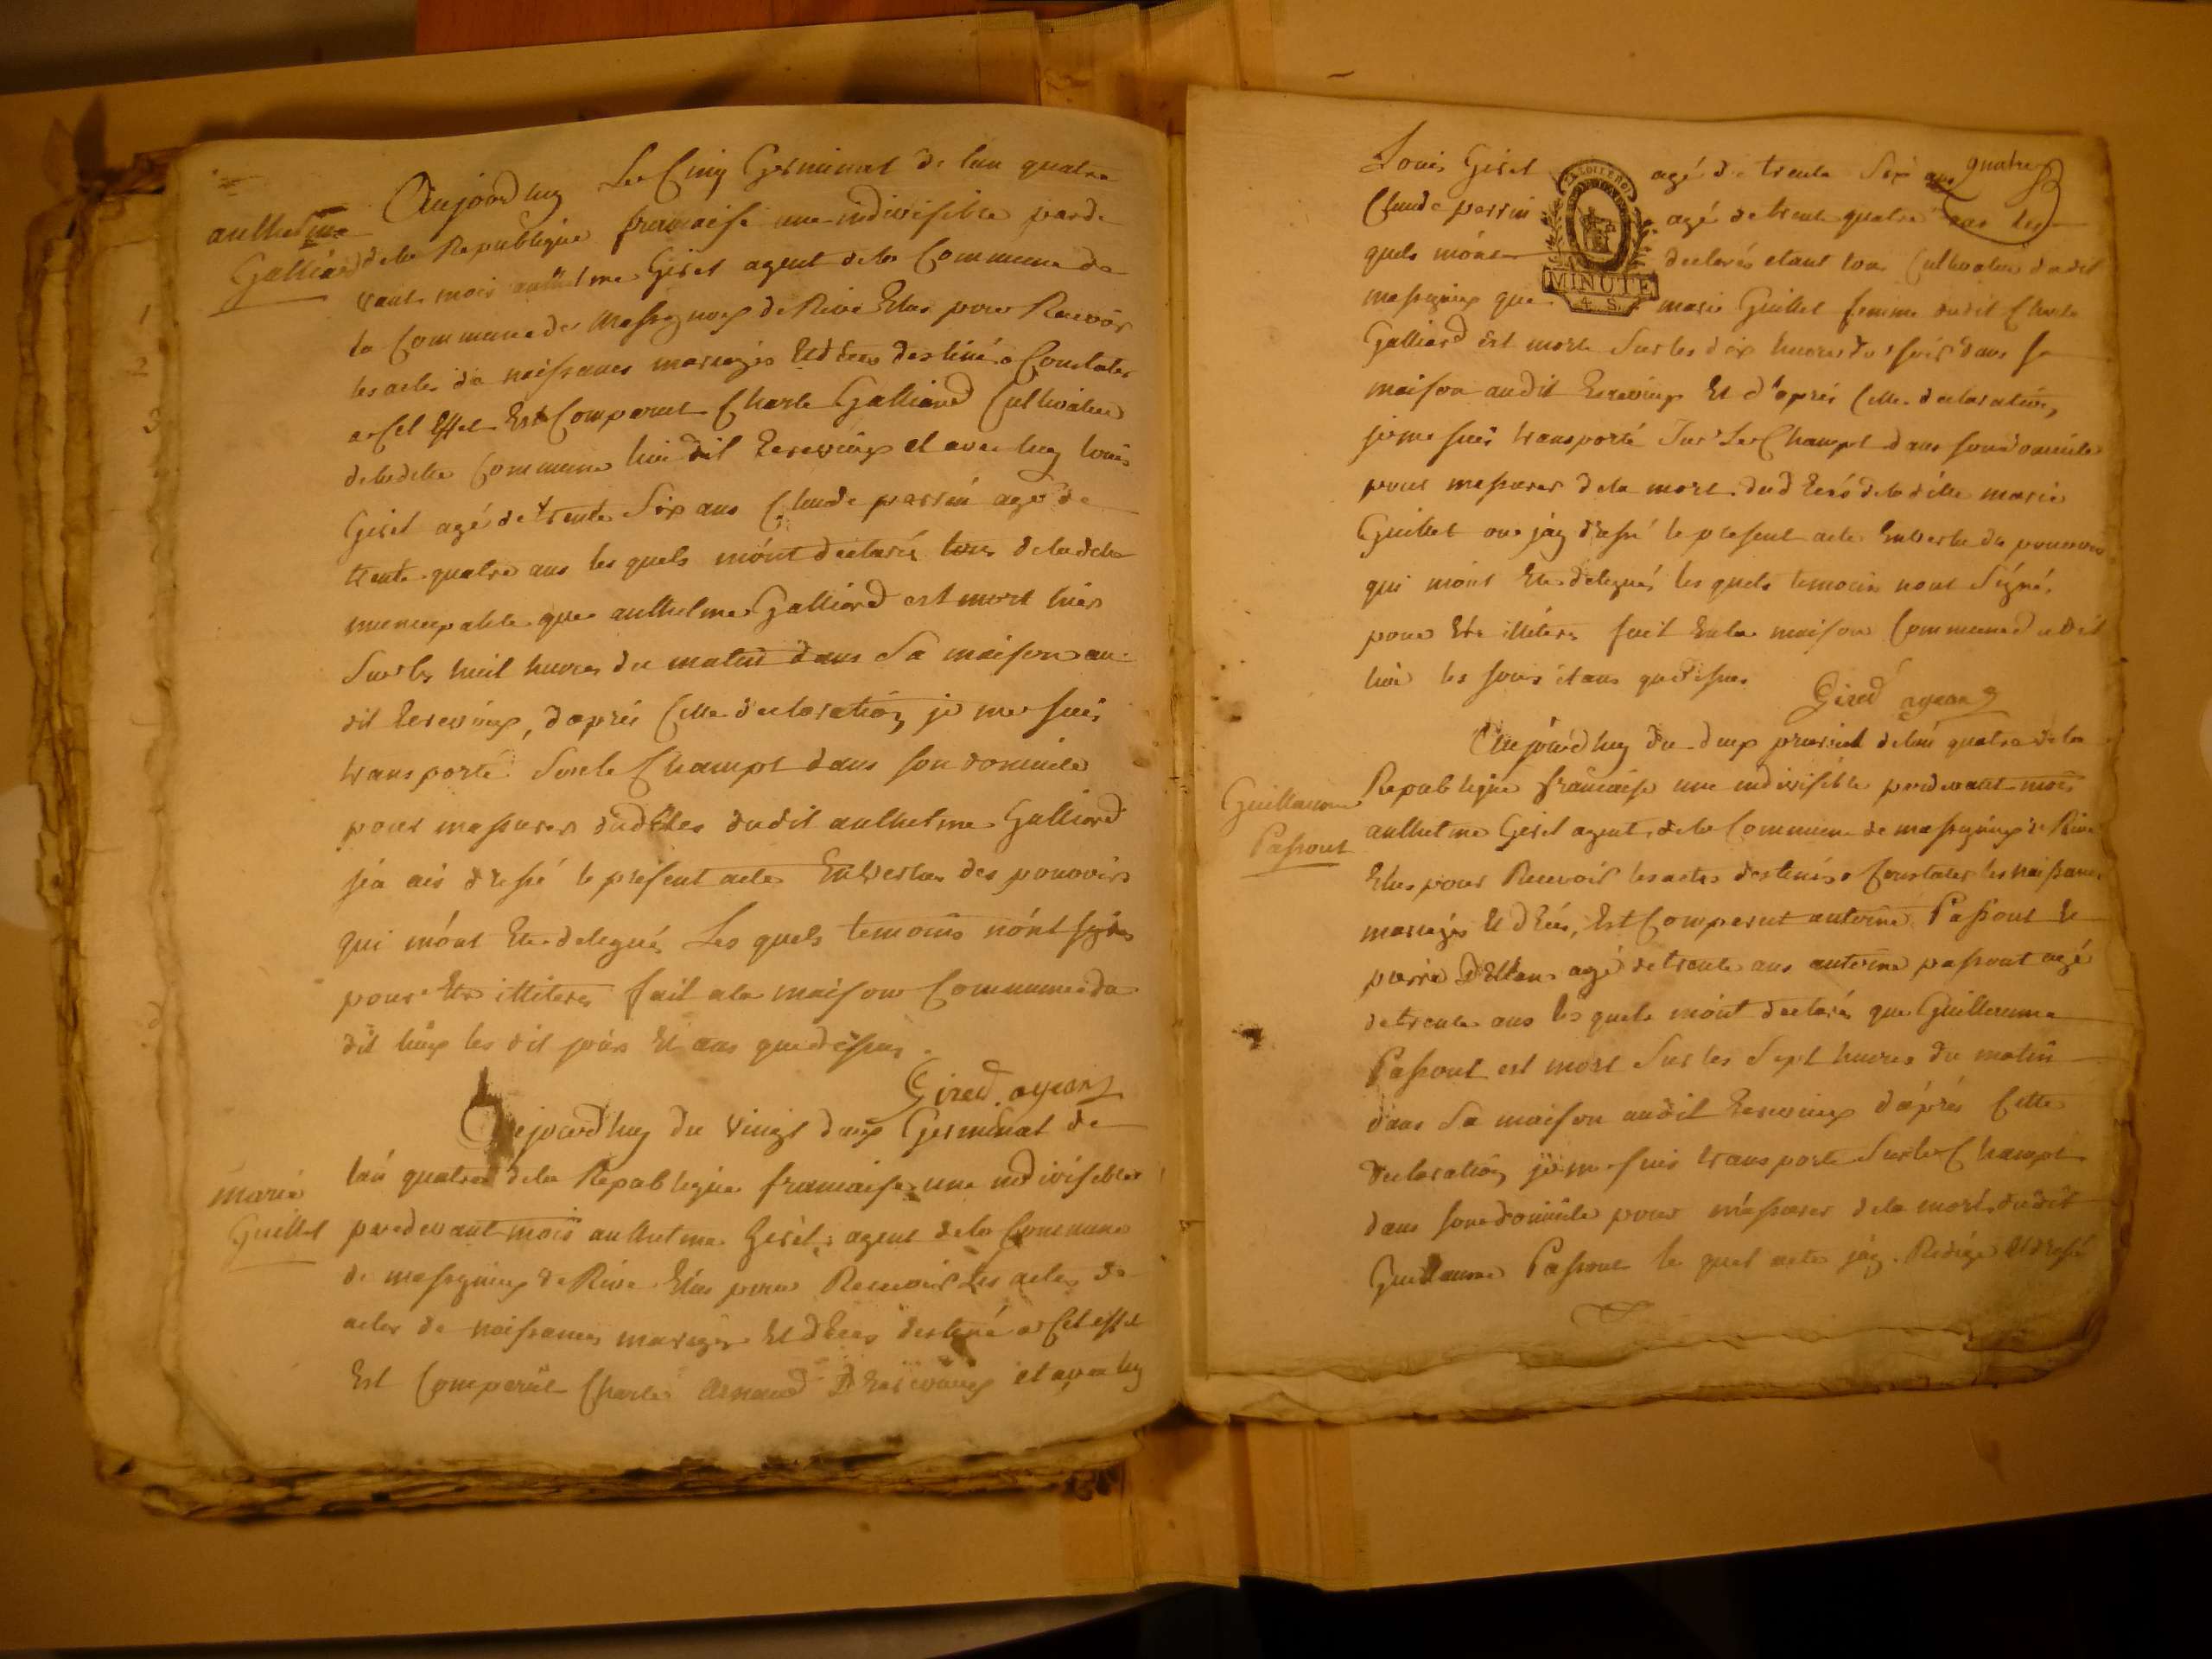 anthelme
Galliard
Aujourdhuy Le Cinq Germinal de lan quatre
dela Republique francaise une indivisible parde
vant mois anthelme Giret agent dela Commune de
la Commune de Massignieux de Rive Elus pour Recevoir
les actes de naissances mariages Et deces destiné a Constater
a Cet Effet Est Comparut Charle Galliard Cultivateur
deladitte Commune et avec luy louis
Giret agé de trente Six ans Claude perrin agé de
trente quatre ans les quels mónt declarés tous deladitte
que anthelme Galliard est mort hier
Sur les huit heures du matin dans Sa maison au
dit d'aprés Cette declaration je me suis
transporté Sur le Champt dans son domicile
pour massurer du deces dudit anthelme Galliard
jéa ais dressé le present acte En Vertu des pouvoirs
qui mónt Ete delegués Les quels temoins nónt signés
pour Etre illiteres fait a la maison Commune du
dit les dit jours Et ans que dessus
Gired agent
marie
Guillet
Aujourdhuy du vingt deux Germinal de
lan quatre dela Republique francaise une indivisible
pardevant mois anthelme Giret agent dela Commune
de massignieux de Rive Elus pour Recevoir Les actes de
actes de naissances mariages Et deces destiné a Cet effet
Est Comparut Charle et avec luy
quatre
Louis Giret agé de trente Six ans
Claude perrin agé de trente quatre ans les
quels mónt declarés etant tous Cultivateur dudit
massignieux que marie Guillet femme dudit Charle
Galliard est morte Sur les dix heures du soir dans sa
maison audit Et d'aprés Cette declaration,
je me suis transporté Sur Le Champt dans son domicile
pour massurer dela mort deladitte marie
Guillet ou jáy dressé le present acte En Vertu du pouvoir
qui mónt Ete delegués les quels temoin nont Signés
pour Etre illiteres fait En la maison Commune dudit
lieu les jours et ans que dessus
Gired agent
LA LOI ET LE ROI
MINUTE
4. S.
Guillaume
Passout
Aujourdhuy du deux prairial delan quatre dela
Republique francaise une indivisible pardevant mois
anthelme Giret agent dela Commune de massignieux de Rive
Elus pour Recevoir les actes destinés a Constater les naissances
mariages Et deces, Est Comparut antoine Passout Et
pierre agé de trente ans antoine passout agé
de trente ans les quels mónt declarés que Guillaume
Passout est mort Sur les Sept heures du matin
dans Sa maison audit d'aprés Cette
declaration je me suis transporté Sur le Champt
dans son domicile pour m'assurer dela mort dudit
Guillaume Passout le quel acte jáy Rédigé Et dressé